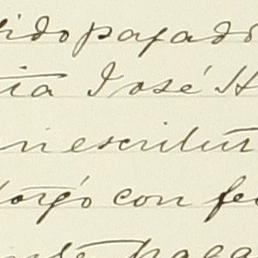 ido pagado
ta José H
n escritur
torgó con fe
paga